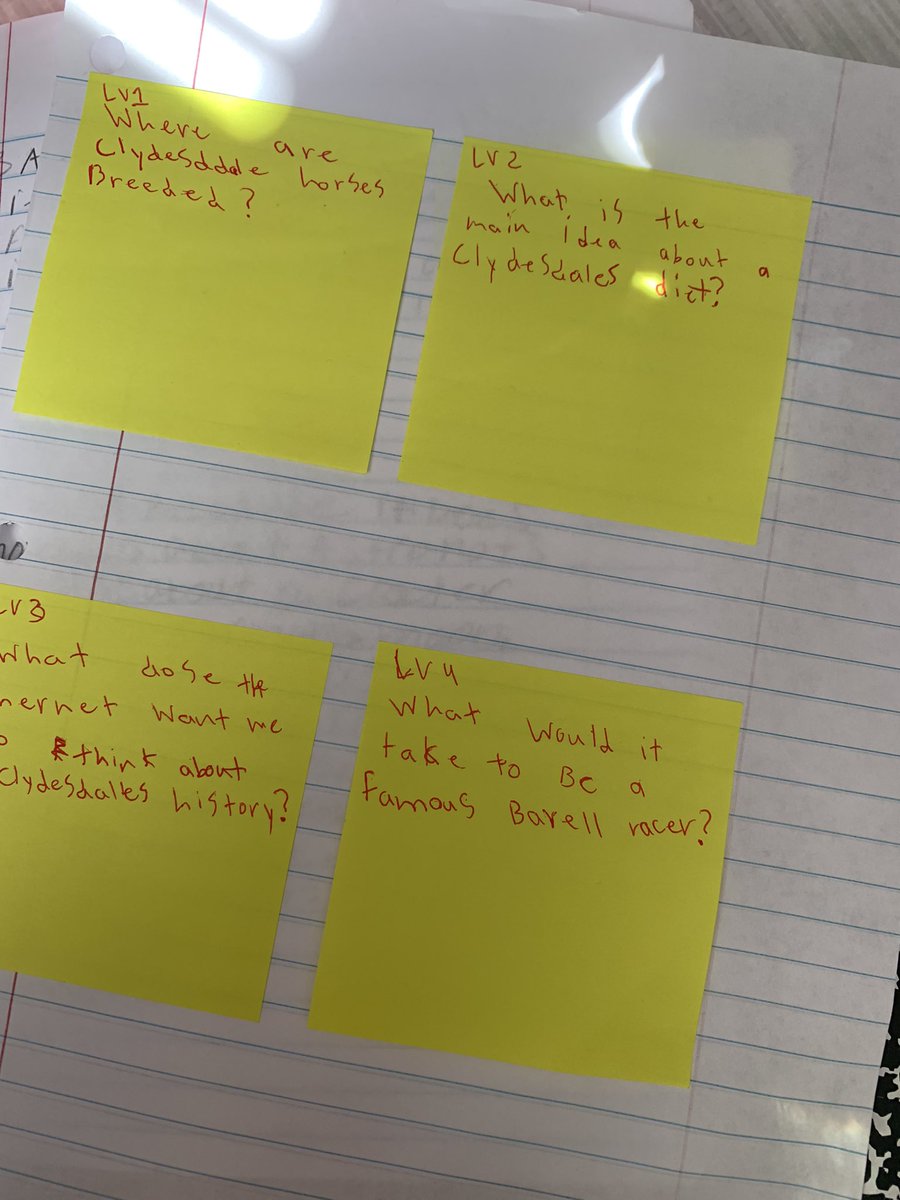 Lv1
Where are
Clydesddale horses
Breeded?
LV2
What is the
main idea about a
Clydesdales diet?
LV3
What dose the
nernet want me
o think about
Clydesdalles history?
LV4
What would it
take to Be a
famous Barell racer?